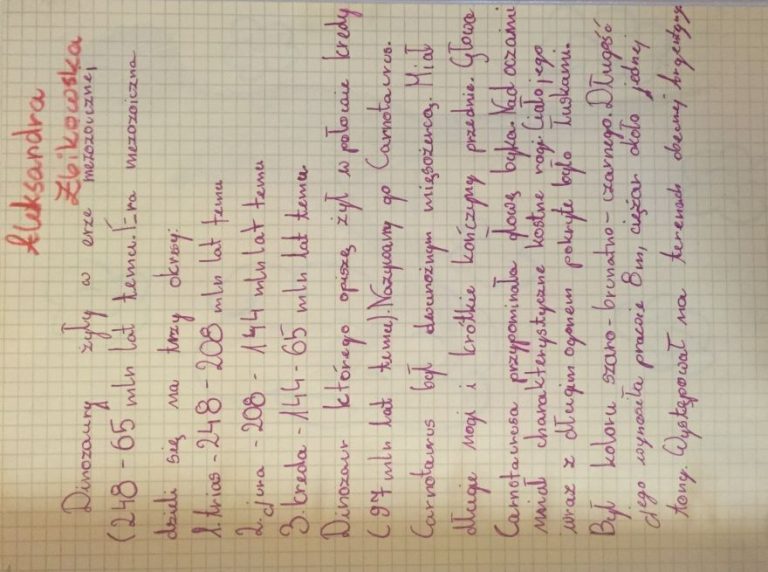 Aleksandra
Zbikowska
Dinozaury żyły w erze mezozoicznej,
(248-65 mln lat temu. Era mezozoiczna
dzieli się na trzy okresy:
1. trias - 248 - 208 mln lat temu
2. jura - 208 - 144 mln lat temu
3. kreda - 144 - 65 mln lat temu.
Dinozaur którego opiszę żył w połowie kredy
(97 mln lat temu). Nazywamy go Carnotaurus.
Carnotaurus był dwunożnym mięsożercą. Miał
długie nogi i krótkie kończyny przednie. Głowa
Carnotaurusa przypominała głowę byka. Nad oczami
miał charakterystyczne kostne rogi. Ciało jego
wraz z długim ogonem pokryte było łuskami.
Był koloru szaro-brunatno-czarnego. Długość
jego wynosiła prawie 8 m, ciężar około jednej
tony. Występował na terenach obecnej Argentyny